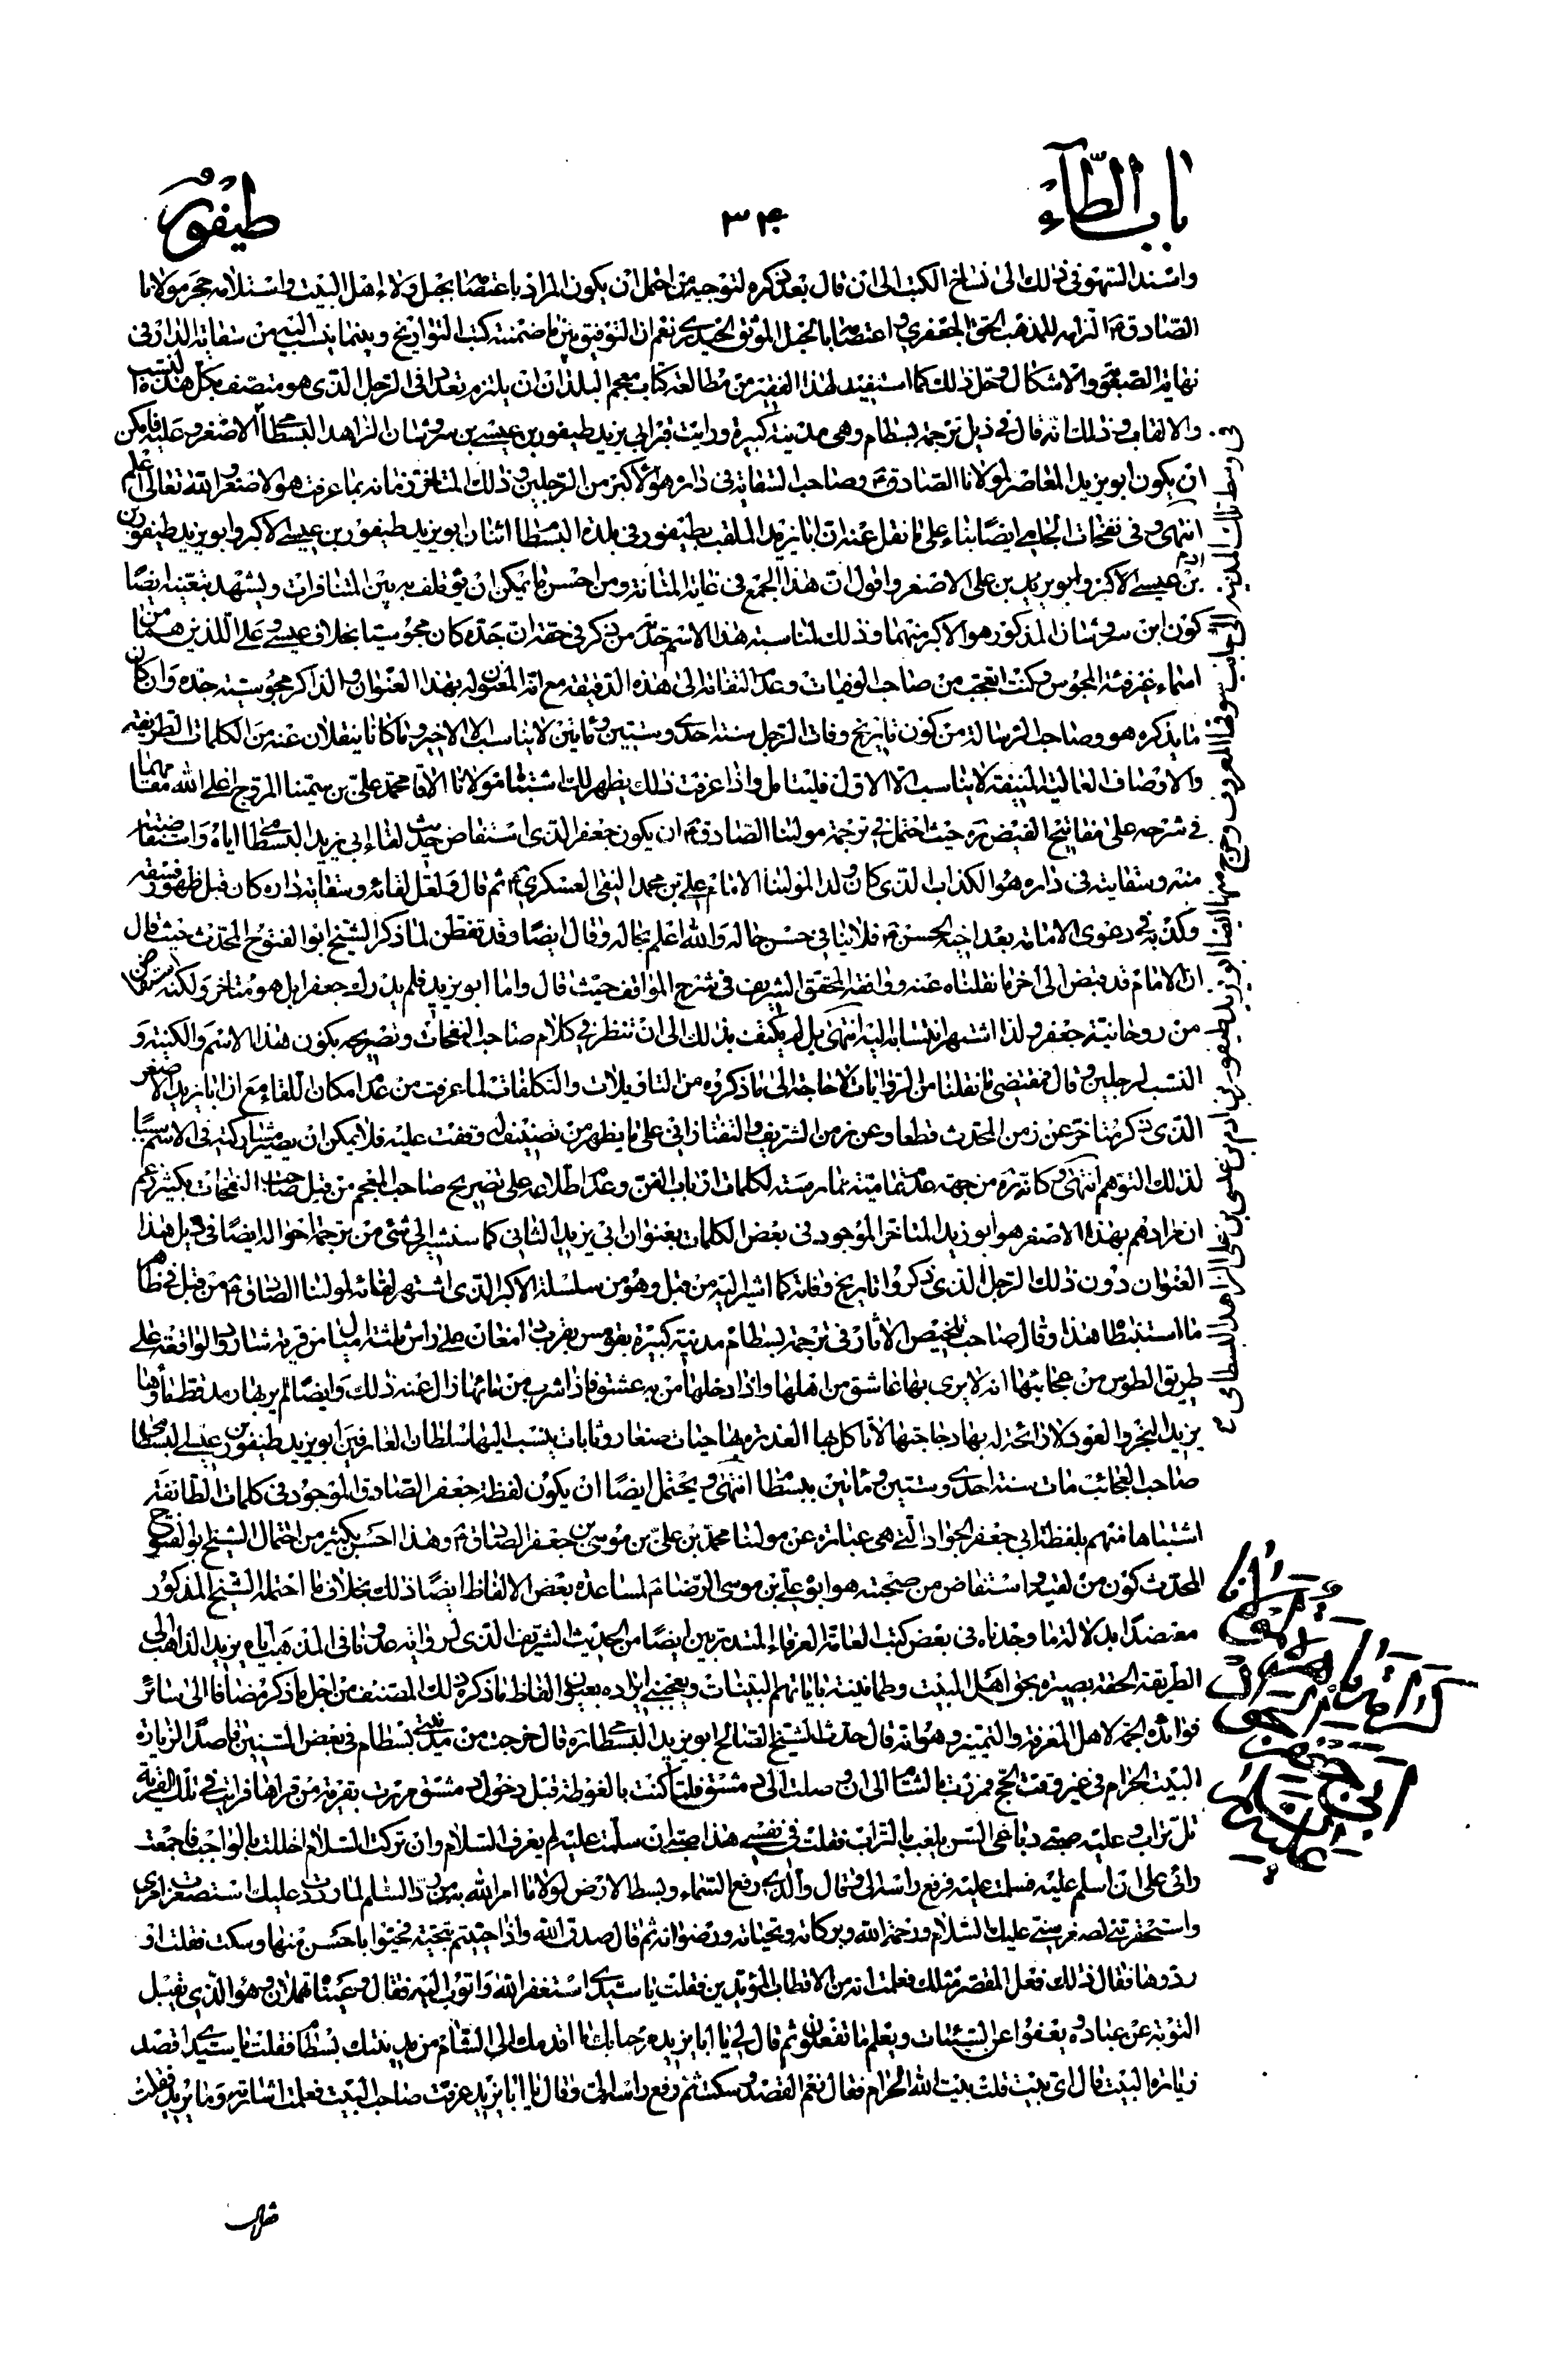 باب الطّآء
٣٤٠
طيفور
واسند السّهو في ذلك الى نساخ الكتب الى ان قال بعد ذكره لتوجيه من احتمل ان يكون المراد باعتصامه بحبل ولاء اهل البيت واستلامه حجر مولانا
الصّادق ع التزامه للمذهب الحق الجعفري و اعتصامه بالحبل الموثق الحيدري نعم ان التوفيق بين ما ضمنته كتب التواريخ وبينما ينسب اليه من سقاية الدار في
نهاية الصعوبة والاشكال وحل ذلك كما استفيد لهذا الفقير من مطالعة كتاب معجم البلدان ان يلتزم بتعدد في الرجل الذى هو متصف بكل هذه النسب
والالقاب وذلك انه قال في ذيل ترجمة بسطام وهى مدينة كبيرة ورايت قبر ابي يزيد طيفور بن عيسى بن سروشان الزاهد البسطامي الاصغر وعليه فيمكن
ان يكون ابو يزيد المعاصر لمولانا الصّادق ع وصاحب السقاية في داره هو الاكبر من الرجلين وذلك المتاخر زمانه بما عرفت هو الاصغر والله تعالى اعلم
انتهى وفى نفحات الجامي ايضا بناء على ما نقل عنه ان ابا يزيد الملقب بطيفور في بلدة البسطام اثنان ابو يزيد طيفور بن عيسى الاكبر وابو يزيد طيفور بن
ادم بن عيسى الاكبر وابو يزيد بن على الاصغر واقول ان هذا الجمع في غاية المتانة ومن احسن ما يمكن ان يؤلف به بين المتنافرات ويشهد بتعينه ايضا
كون ابن سروشان المذكور هو الاكبر منهما وذلك لمناسبة هذا الاسم جد من ذكر في حقه ان جده كان مجوسيا بخلاف عيسى وعلى اللذين هما من
اسماء غير فئة المجوس وكنت اتعجب من صاحب الوفيات وعدم التفاته الى هذه الدقيقة مع انه المعنون له بهذا العنوان والذاكر مجوسية جده وان كان
ما يذكره هو وصاحب الرسالة من كون تاريخ وفات الرجل سنة احدى وستين ومائتين لا يناسب الا الاخير وما كانا ينقلان عنه من الكلمات الطريفة
والاوصاف العالية المنيفة لا يناسب الا الاول فليتامل واذا عرفت ذلك يظهر لك اشتباه مولانا الاقا محمد على بن سمينا المروج اعلى الله مقامهما
في شرحه على مفاتيح الفيض ره حيث احتمل في ترجمة مولينا الصّادق ع ان يكون جعفر الذى استفاض حديث لقاء ابى يزيد البسطامي اياه واستفاضته
منه وسقايته في داره هو الكذاب الذى كان ولدا لمولينا الامام على بن محمد النقى العسكري ع ثم قال ولعل لقائه وسقاية داره كان قبل ظهور فسقه
وكذبه في دعوى الامامة بعد اخيه الحسن ع فلا ينافي حسن حاله والله اعلم بحاله وقال ايضا وقد تفطن لما ذكر الشيخ ابو الفتوح المحدث حيث قال
ان الامام قد قبض الى اخر ما نقلناه عنه ووافقه المحقق الشريف في شرح المواقف حيث قال واما ابو يزيد فلم يدرك جعفرا بل هو متاخر ولكنه استفاض
من روحانية جعفر ولذا اشتهر انتسابه اليه انتهى بل لم يكتف بذلك الى ان تنظر في كلام صاحب النفحات وتصريحه بكون هذا الاسم والكنية و
النسب لرجلين وقال فمقتضى ما نقلنا من الروايات لا حاجة الى ما ذكروه من التاويلات والتكلفات لما عرفت من عدم امكان اللقاء مع ان ابا يزيد الاصغر
الذى ذكر متاخر عن زمن المحدث قطعا وعن زمن الشريف والتفتازانى على ما يظهر من تصنيف له وقفت عليه فلا يمكن ان يصير مشاركته في الاسم سببا
لذلك التوهم انتهى وكانه ره من جهة عدم تمامية ممارسته لكلمات ارباب الفن وعدم اطلاعه على تصريح صاحب المعجم من قبل صاحب النفحات بكثير زعم
ان مرادهم بهذا الاصغر هو ابو يزيد المتاخر الموجود في بعض الكلمات بعنوان ابى يزيد الثانى كما سنشير الى شئ من ترجمة احواله ايضا في ذيل هذا
العنوان دون ذلك الرجل الذى ذكروا تاريخ وفاته كما اشير اليه من قبل وهو من سلسلة الاكبر الذى اشتهر لقائه لمولينا الصادق ع من قبل في ظاهر
ما استنبطنا هذا وقال صاحب تلخيص الاثار في ترجمة بسطام مدينة كبيرة بقومس بقرب دامغان على راس ثلثة اميال من قرية شارود الواقعة على
طريق الطوس من عجائبها انه لا يرى بها عاشق من اهلها واذا دخلها من به عشق فاذا شرب من مائها زال عنه ذلك وايضا لم ير بها رمد قط وماؤها
يزيل البخر والعود لا رائحة له بها ودجاجتها لا تاكل بها العذرة بها حيات صغار وثابات ينسب اليها سلطان العارفين ابو يزيد طيفور بن عيسى البسطامي
صاحب العجائب مات سنة احدى وستين ومائتين ببسطام انتهى ويحتمل ايضا ان يكون لفظة جعفر الصادق الموجود في كلمات الطائفة
اشتباها منهم بلفظة ابى جعفر الجواد الّتى هى عبارة عن مولينا محمد بن على بن موسى بن جعفر الصادق ع وهذا احسن بكثير من احتمال الشيخ ابو الفتوح
المحدث كون من لقيه واستفاض من صحبته هو ابو على بن موسى الرضا ع لمساعدة بعض الالفاظ ايضا ذلك بخلاف ما احتمله الشيخ المذكور
معتضدا بدلالة ما وجدناه في بعض كتب العامة العرفاء المتدربين ايضا من الحديث الشريف الذى
الطريقة الحقة بصيرة بحق اهل البيت وطمانينة باياتهم البينات ويعجبنى ايراده بعين الفاظ ما ذكره ذلك المصنف من اجل ما ذكر مضافا الى سائر
فوائده الجمة لاهل المعرفة والتميز وهو انه قال حدث الشيخ الصالح ابو يزيد البسطامي ره قال خرجت من مدينتى بسطام في بعض السنين قاصدا لزيارة
البيت الحرام في غير وقت الحج فمررت بالشام الى ان وصلت الى دمشق فلما كنت بالغوطة قبل دخول دمشق مررت بقرية من قراها فرايت في تلك القرية
تل تراب وعليه صبى رباعى السن يلعب بالتراب فقلت في نفسى هذا صبى ان سلمت عليه لم يعرف السلام وان تركت السلام اخللت بالواجب فاجمعت
رائى على ان اسلم عليه فسلمت عليه فرفع راسه الى وقال والذى رفع السماء وبسط الارض لولا ما امر الله به من رد السلم لما رددت عليك استصغرت امرى
واستحقرتنى لصغر سنى عليك السلام ورحمة الله وبركاته وتحياته ورضوانه ثم قال صدق الله واذا حييتم بتحية فحيوا باحسن منها وسكت فقلت او
ردوها فقال ذلك فعل المقصر مثلك فعلمت انه من الاقطاب المؤيدين فقلت يا سيدى استغفر الله واتوب اليه فقال
التوبة عن عباده ويعفوا عن السيئات ويعلم ما تفعلون ثم قال لى يا ابا يزيد مرحبا بك ما اقدمك الى الشام من مدينتك بسطام فقلت يا سيدى اقصد
زيارة البيت قال اى بيت قلت بيت الله الحرام فقال نعم القصد وسكت ثم رفع راسه الى وقال يا ابا يزيد عرفت صاحب البيت فعلمت اشارته وما يريد فقلت
في وسط تلك المدينة الى جانب سوقها المعروف وخرج منها ايضا ابو يزيد طيفور بن ادم بن عيسى بن على الزاهد البسطامى